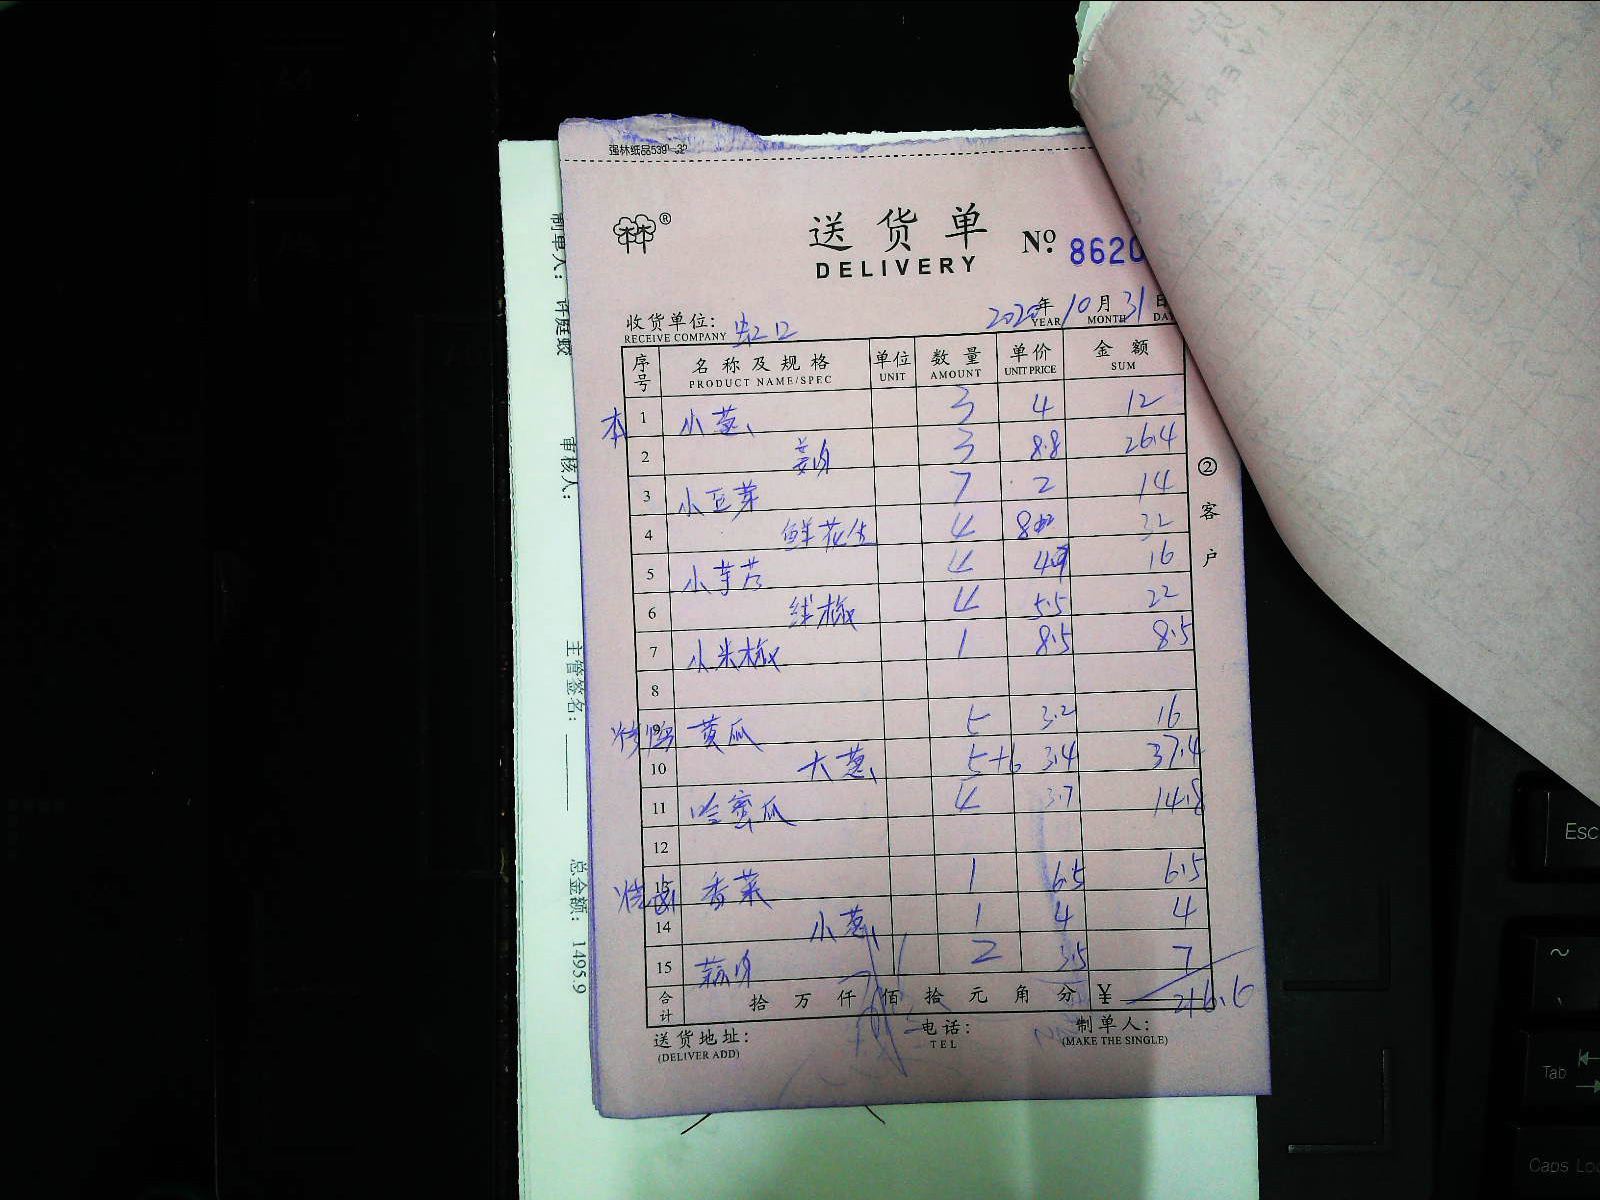 强林纸品539-32
送货单
DELIVERY
No. 8620
收货单位: 虹口
RECEIVE COMPANY
2020年10月31日
YEAR MONTH DA
序号 名称及规格 单位 数量 单价 金额
PRODUCT NAME/SPEC UNIT AMOUNT UNIT PRICE SUM
本 1 小葱 3 4 12
2 姜肉 3 8.8 26.4
3 小豆芽 7 2 14
4 鲜花生 4 8 32
5 小芋艿 4 4 16
6 线椒 4 5.5 22
7 小米椒 1 8.5 8.5
8
烤鸭 9 黄瓜 5 3.2 16
10 大葱 5+6 3.4 37.4
11 哈蜜瓜 4 3.7 14.8
12
烧卤 13 香菜 1 6.5 6.5
14 小葱 1 4 4
15 蒜肉 2 3.5 7
合计 拾 万 仟 佰 拾 元 角 分 ¥ 216.6
送货地址: 电话: 制单人:
(DELIVER ADD) TEL (MAKE THE SINGLE)
②客户
制单人: 许庭蛟
审核人:
主管签名:
总金额: 1495.9
Esc
~
Tab
Caps Lo